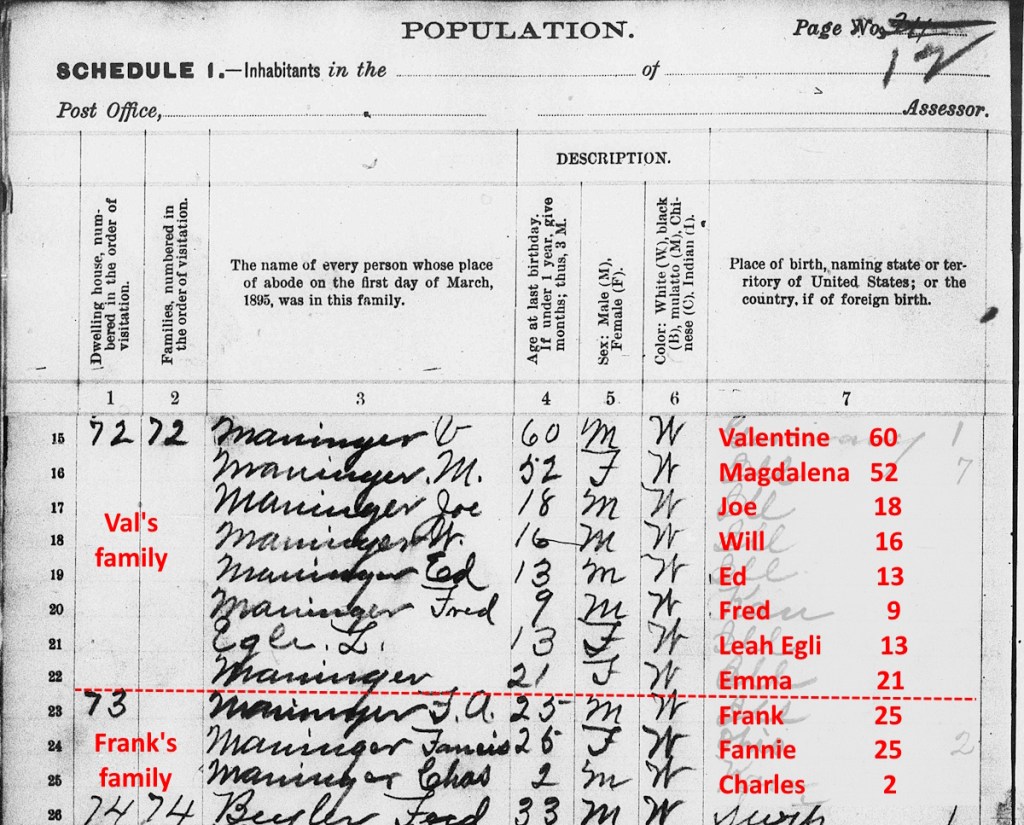 POPULATION.
Page No. 12
SCHEDULE 1.—Inhabitants in the of
Post Office, Assessor.
DESCRIPTION.
Dwelling house, num-
bered in the order of
visitation.
Families, numbered in
the order of visitation.
The name of every person whose place
of abode on the first day of March,
1895, was in this family.
Age at last birthday.
If under 1 year, give
months; thus, 3 M.
Sex: Male (M),
Female (F).
Color: White (W), black
(B), mulatto (M), Chi-
nese (C), Indian (I).
Place of birth, naming state or ter-
ritory of United States; or the
country, if of foreign birth.
1 2 3 4 5 6 7
15 72 72 Maninger V 60 M W Valentine 60 1
16 Maninger. M. 52 F W Magdalena 52 7
17 Maninger Joe 18 M W Joe 18
Val's
family
18 Maninger W. 16 M W Will 16
19 Maninger Ed 13 M W Ed 13
20 Maninger Fred 9 M W Fred 9
21 Egle. L. 13 F W Leah Egli 13
22 Maninger 21 F W Emma 21
23 73 Maninger F.A. 25 M W Frank 25
Frank's
family
24 Maninger Fancis 25 F W Fannie 25 2
25 Maninger Chas 2 M W Charles 2
26 74 74 Fred 33 M W 1